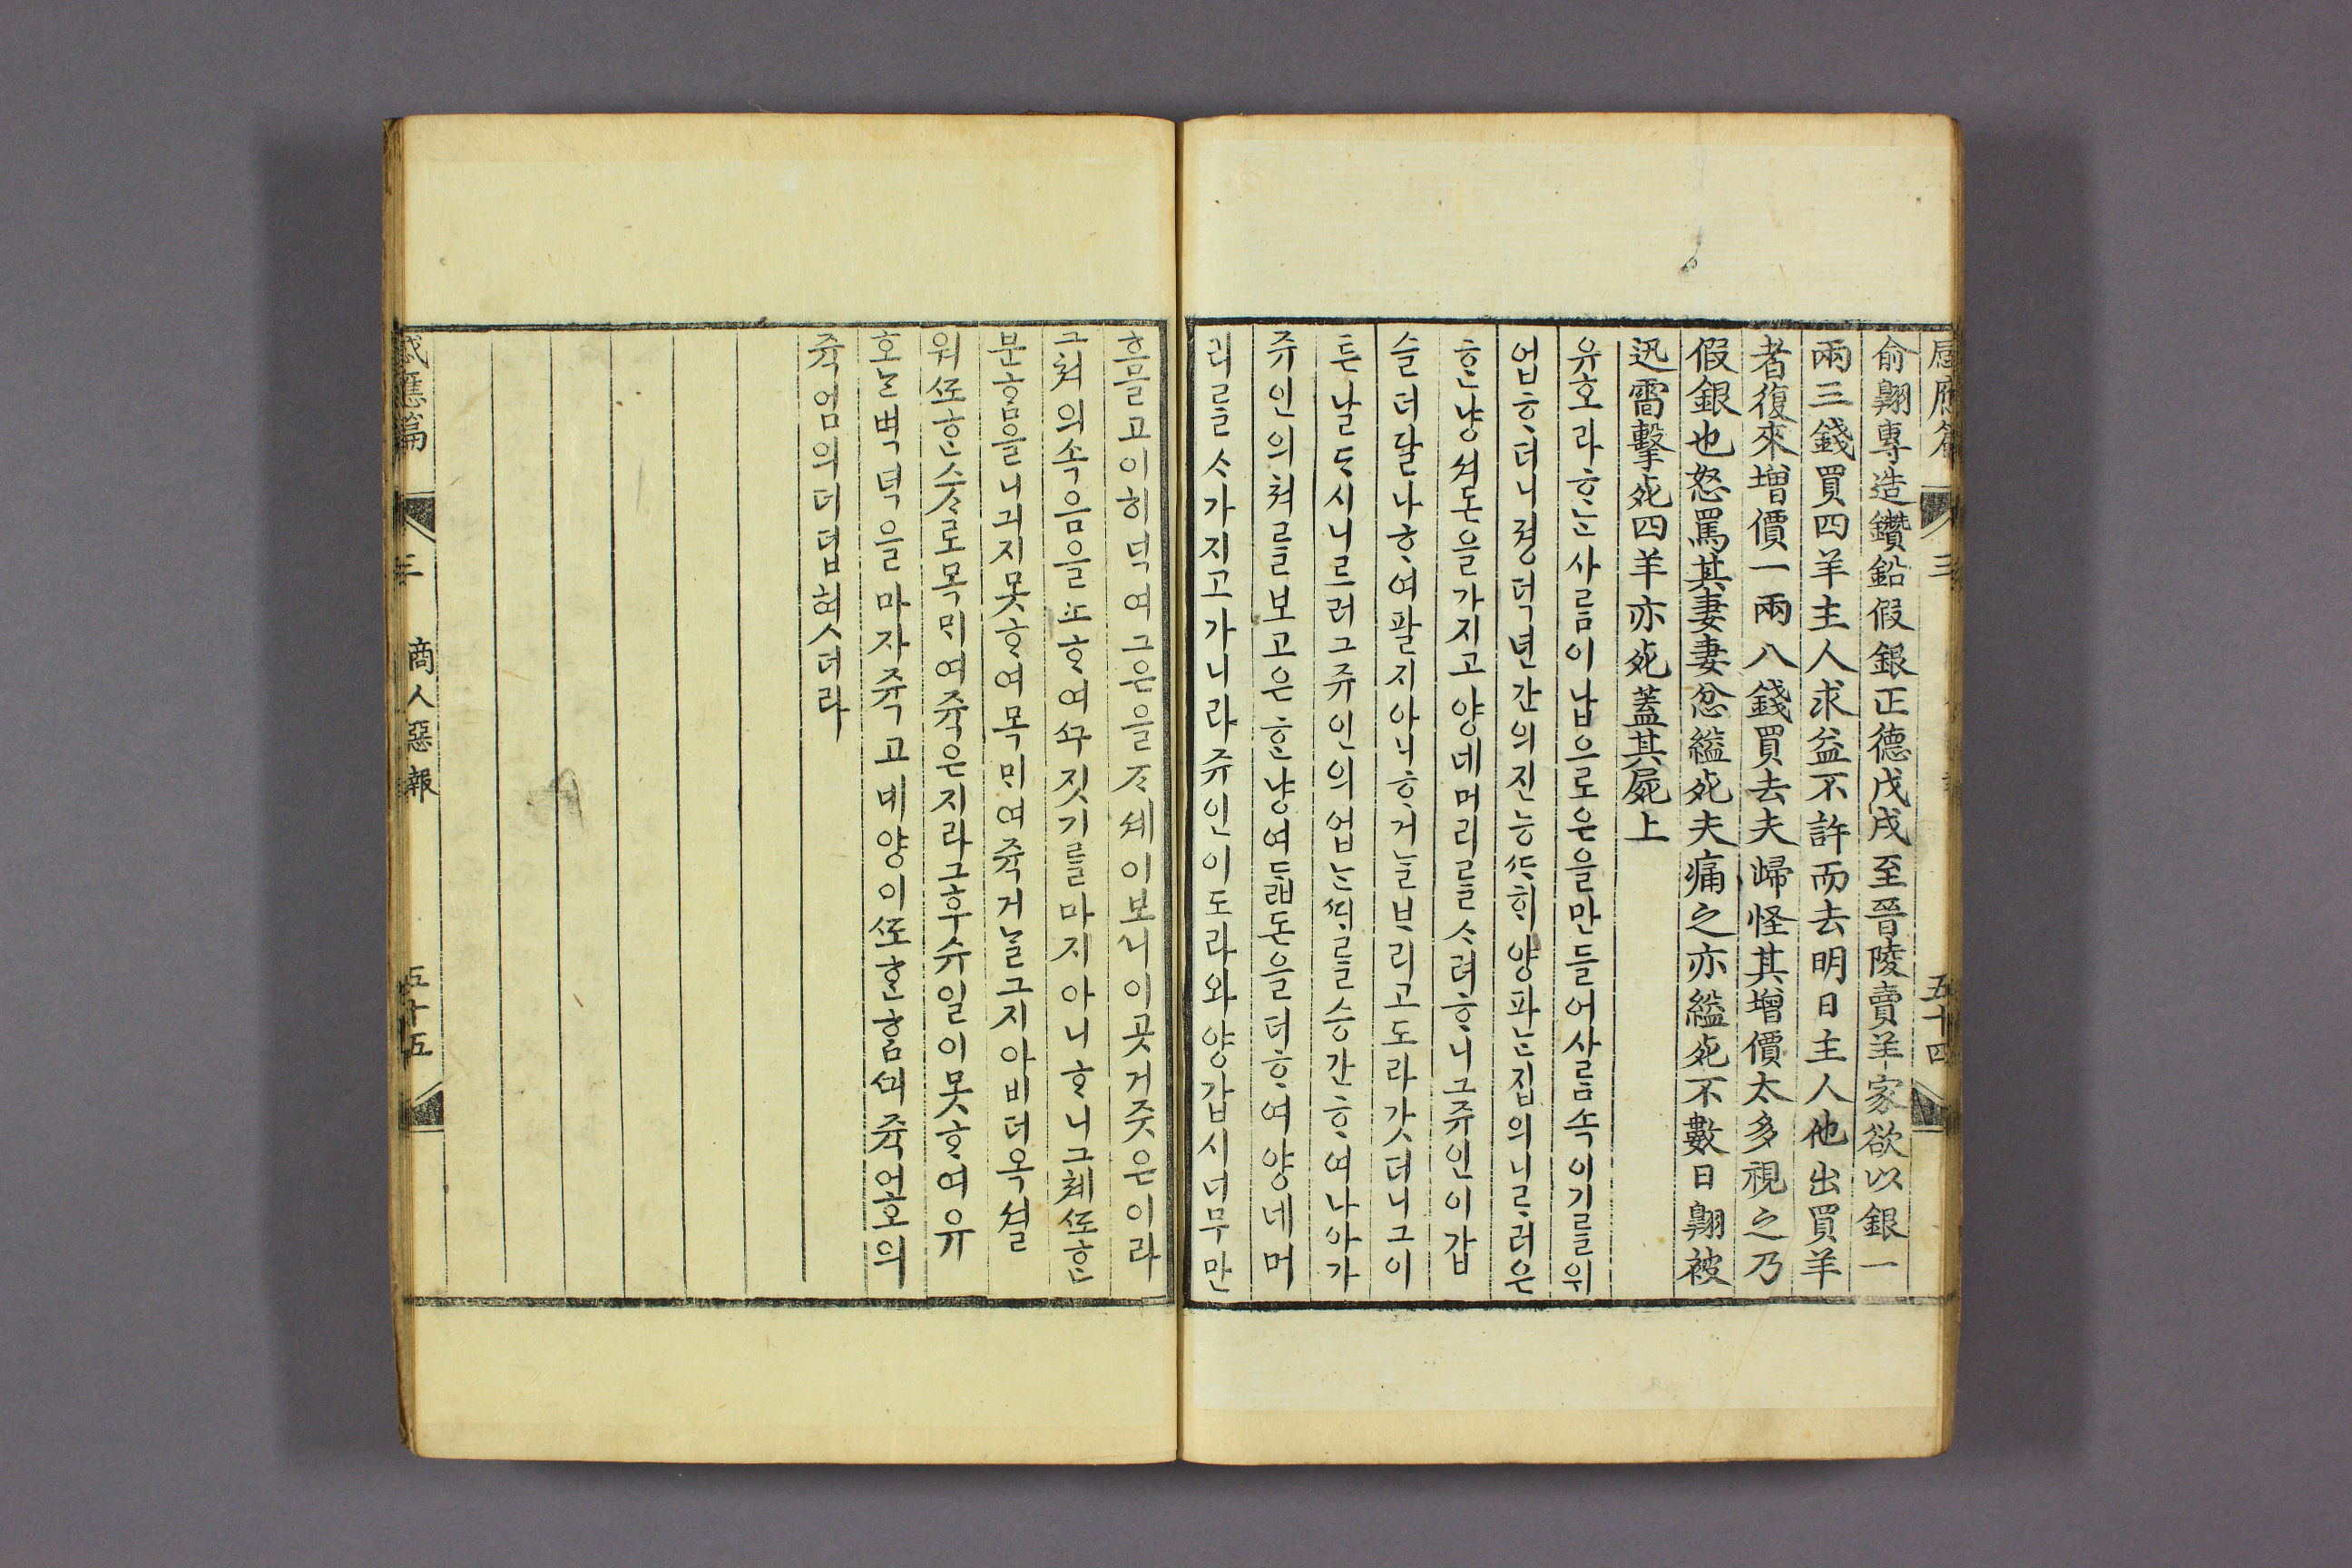 感應篇 三 五十四
俞翺專造鑽鉛假銀正德戊戌至晉陵賣羊家欲以銀一
兩三錢買四羊主人求益不許而去明日主人他出買羊
者復來增價一兩八錢買去夫歸怪其增價太多視之乃
假銀也怒罵其妻妻忿縊死夫痛之亦縊死不數日翺被
迅雷擊死四羊亦死蓋其屍上
유호라 ᄒᆞᆫ 사ᄅᆞᆷ이 납으로 은을 만들어 사ᄅᆞᆷ 속이기ᄅᆞᆯ 위
업ᄒᆞ더니 졍덕 년간의 진능 ᄯᆞ희 양 파ᄂᆞᆫ 집의 니ᄅᆞ러 은
ᄒᆞᆫ 냥 셔 돈을 가지고 양 네 머리ᄅᆞᆯ ᄉᆞ려 ᄒᆞ니 그 쥬인이 갑
슬 더 달나 ᄒᆞ여 팔지 아니ᄒᆞ거ᄂᆞᆯ ᄇᆞ리고 도라갓더니 그 이
튼날 ᄃᆞ시 니르러 그 쥬인의 업ᄂᆞᆫ ᄯᆡᄅᆞᆯ 승간ᄒᆞ여 나아가
쥬인의 쳐ᄅᆞᆯ 보고 은 ᄒᆞᆫ 냥 여ᄃᆞᆲ 돈을 더ᄒᆞ여 양 네 머
리ᄅᆞᆯ ᄉᆞ가지고 가니라 쥬인이 도라와 양 갑시 너무 만
흐믈 고이히 넉여 그 은을 ᄌᆞ셰이 보니 이 곳 거즛 은이라
그 쳐의 속음을 노ᄒᆞ여 ᄭᅮ짓기ᄅᆞᆯ 마지 아니ᄒᆞ니 그 체 ᄯᅩᄒᆞᆫ
분ᄒᆞᆷ을 니긔지 못ᄒᆞ여 목 ᄆᆡ여 쥭거ᄂᆞᆯ 그 지아비 더옥 셜
워 ᄯᅩᄒᆞᆫ 스ᄉᆞ로 목 ᄆᆡ여 쥭은지라 그 후 슈일이 못ᄒᆞ여 유
호ᄂᆞᆫ 벽녁을 마자 쥭고 네 양이 ᄯᅩᄒᆞᆫ ᄒᆞᆷᄭᅴ 쥭어 호의
쥭엄의 더덥혓더라
感應篇 三 商人惡報 五十五